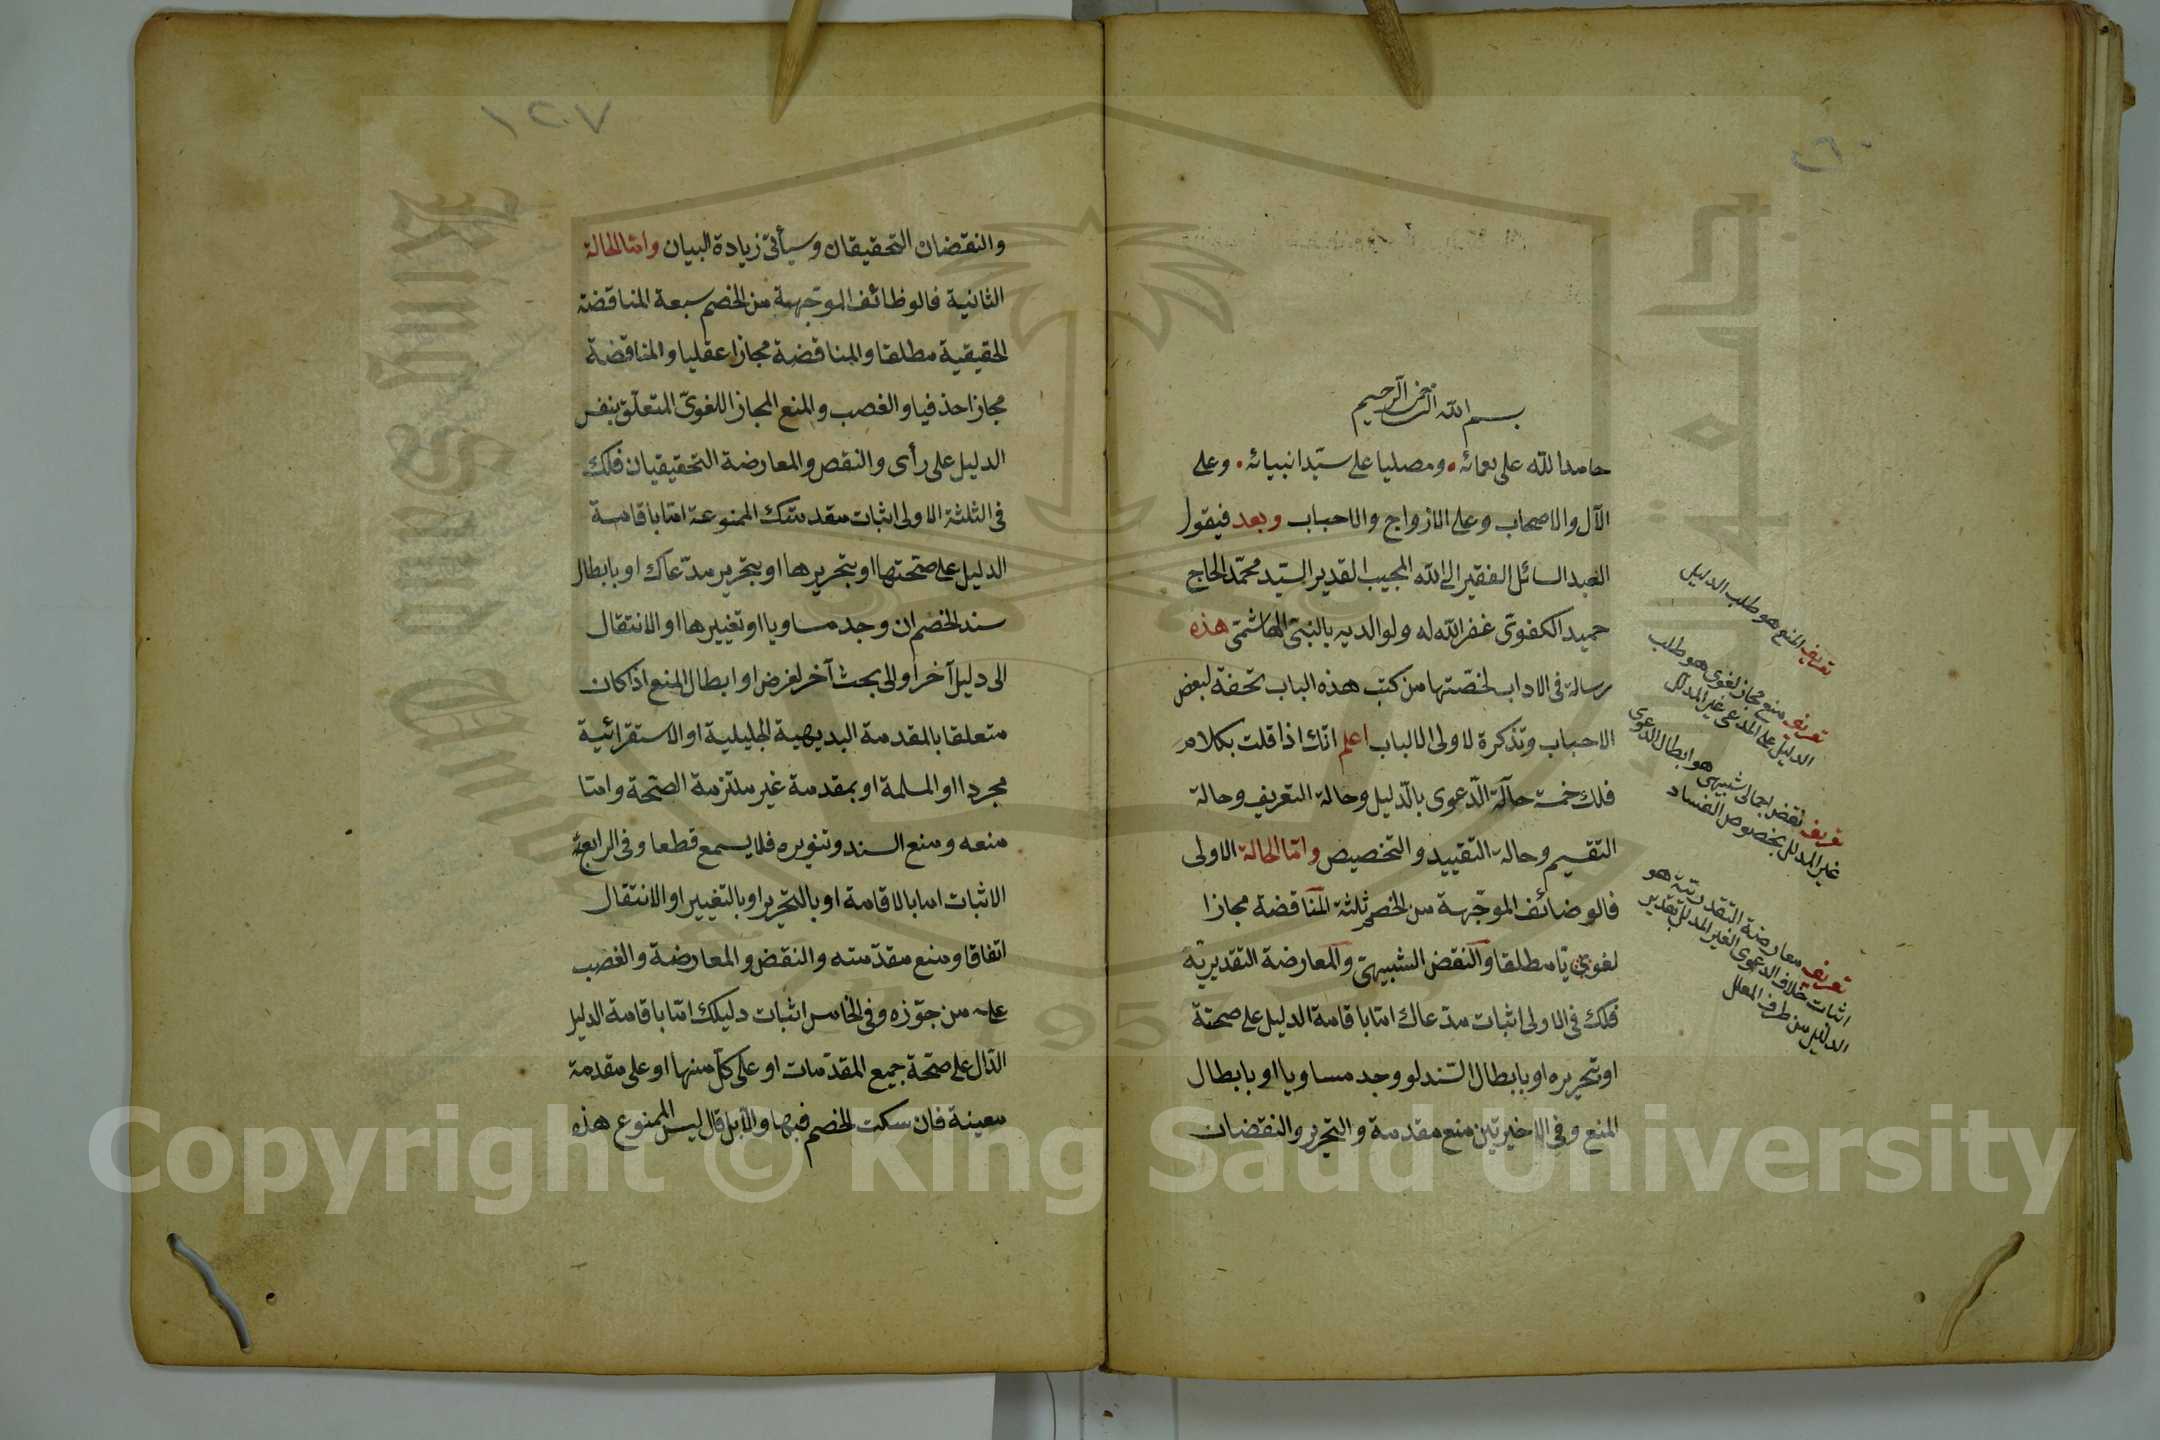 بسم الله الرحمن الرحيم
حامدا لله على نعمائه ومصليا على سيد انبيائه وعلى
الآل والاصحاب وعلى الازواج والاحباب وبعد فيقول
العبد السائل الفقير الى الله المجيب القدير السيد محمد الحاج
حميد الكفوى غفر الله له ولوالديه بالنبى الهاشمى هذه
رسالة فى الاداب لخصتها من كتب هذه الباب تحفة لبعض
الاحباب وتذكرة لاولى الالباب اعلم انك اذا قلت بكلام
فلك خمسة حالة الدعوى بالدليل وحالة التعريف وحالة
التقسيم وحالة التقييد والتخصيص واما الحالة الاولى
فالوضائف الموجهة من الخصم ثلثة المناقضة مجازا
لغويا مطلقا والنقض الشبيهى والمعارضة التقديرية
فلك فى الاولى اثبات مدعاك اما باقامة الدليل على صحته
او بتحريره او بابطال السند لو وجد مساويا او بابطال
المنع وفى الاخيرتين منع مقدمة والتحرير والنقضان
تعريف المنع هو طلب الدليل
تعريف منع مجاز لغوى هو طلب
الدليل على المدعى غير المدلل
تعريف نقض اجمالى شبيهى هو ابطال الدعوى
غير المدلل بخصوص الفساد
تعريف معارضة التقديرية هو
اثبات خلاف الدعوى الغير المدلل بتقدير
الدليل من طرف المعلل
١٢٠٧
والنقضان التحقيقان وسيأتى زيادة البيان واما الحالة
الثانية فالوظائف الموجهة من الخصم سبعة المناقضة
الحقيقية مطلقا والمناقضة مجازا عقليا والمناقضة
مجازا حذفيا والغصب والمنع المجاز اللغوى المتعلق بنفس
الدليل على رأى والنقص والمعارضة التحقيقيان فلك
فى الثلثة الاولى اثبات مقدمتك الممنوعة اما باقامة
الدليل على صحتها او بتحريرها او بتحرير مدعاك او بابطال
سند الخصم ان وجد مساويا او تغييرها او الانتقال
الى دليل آخر او الى بحث آخر لغرض او ابطال المنع اذا كان
متعلقا بالمقدمة البديهية الجليلية او الاستقرائية
مجردا او المسلمة او بمقدمة غير ملتزمة الصحة واما
منعه ومنع السند وتنويره فلا يسمع قطعا وفى الرابعة
الاثبات اما بالاقامة او بالتحرير او بالتغيير او الانتقال
اتفاقا ومنع مقدمته والنقض والمعارضة والغصب
على من جوزه وفى الخامس اثبات دليلك اما باقامة الدليل
الدال على صحة جميع المقدمات او على كل منها او على مقدمة
معينة فان سكت الخصم فبها والا بل قال ليس الممنوع هذه
Copyright © King Saud University
King Saud University
جامعة
1957